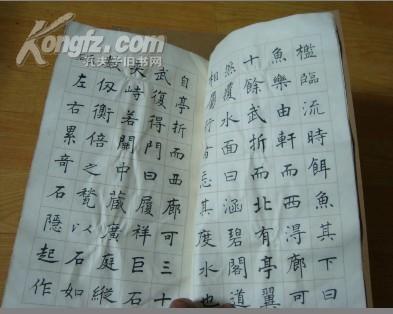 Kongfz.com
孔夫子旧书网
檻臨流時餌魚其下曰
魚樂由軒而西淂廊可
十餘武折而北有亭翼
然覆水面曰涵碧閣道
相屬行者忘其度水也
自亭折而西廊可三十
武復得門曰履祥巨石
夾峙若關中藏廣庭縱
數仞衡倍之甃以石如
左右累奇石隱起作